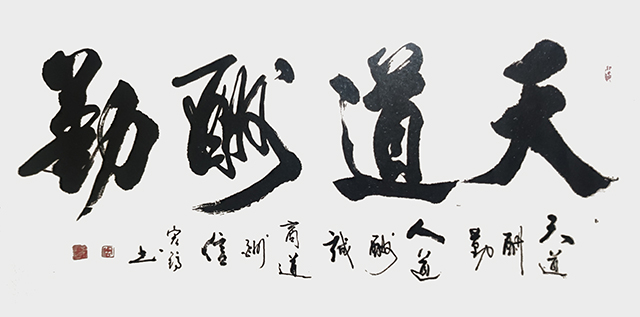 天道酬勤
天道酬勤人道酬誠商道酬信
书